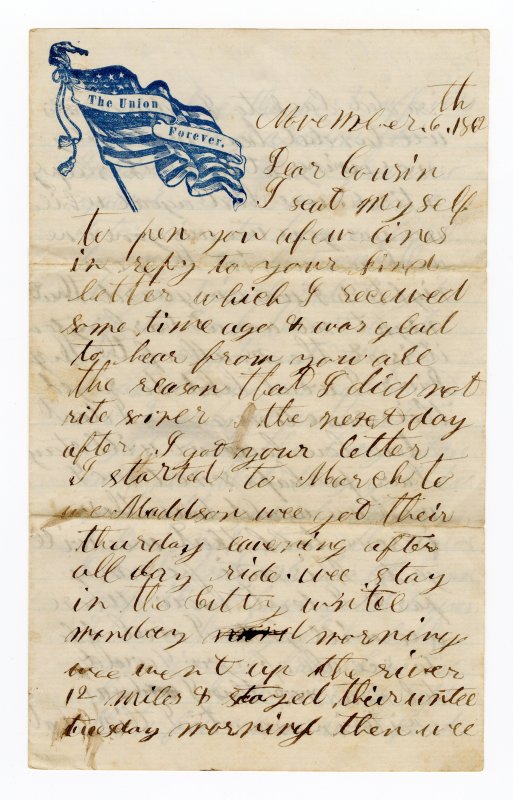 The Union
Forever.
November 6th. 1862
Dear Cousin
I seat myself
to pen you a few lines
in reply to your kind
letter which I received
some time ago & was glad
to hear from you all
the reason that I did not
rite soner the next day
after I got your letter
I started to March to
Maddson wee got their
thursday eavening after
all day ride. wee stay
in the Citty untill
monday morning
wee went up the river
12 miles & stayed their untee
tuesday morning then wee